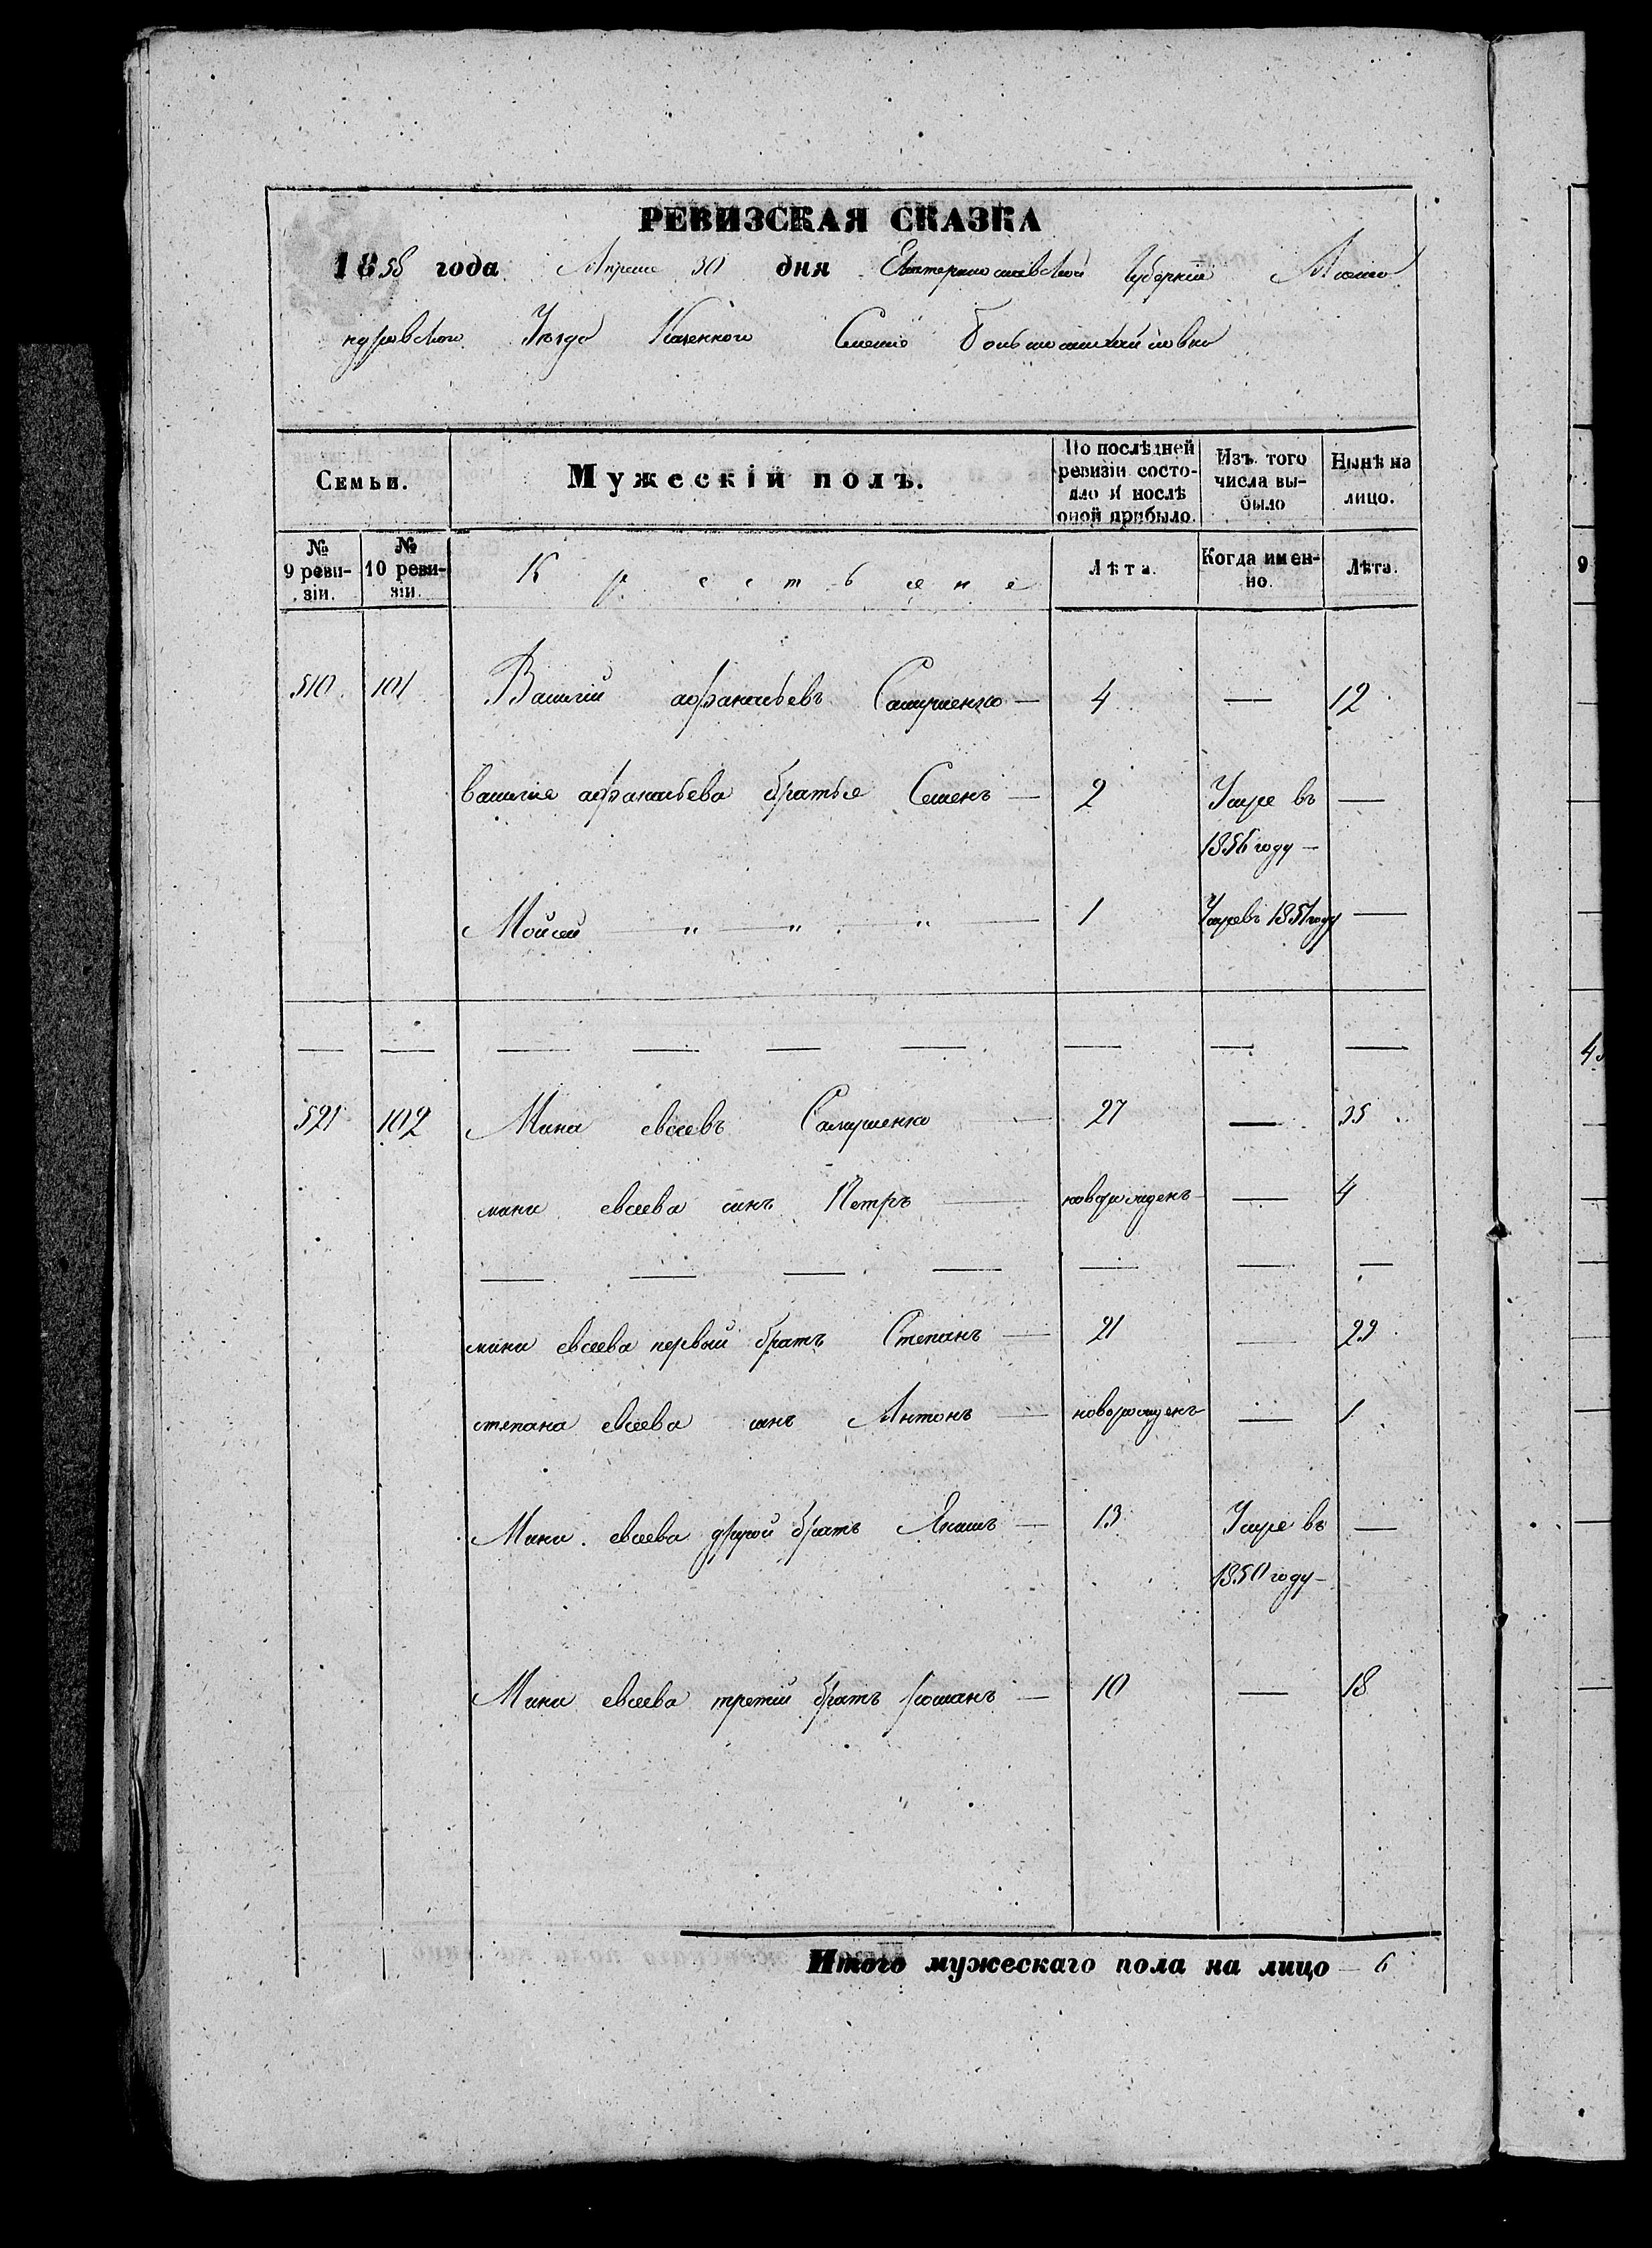 РЕВИЗСКАЯ СКАЗКА
1858 года Апреля 30 дня Екатеринославской Губерніи Алекса
ндровского Уезда Казенного Селенія Большомихайловки
Семьи.
Мужескій полъ.
По послѣдней ревизіи состояло и послѣ оной прибыло.
Изъ того числа выбыло
Нынѣ на лицо.
№ 9 ревизіи.
№ 10 ревизіи.
Крестьяне
Лѣта.
Когда именно.
Лѣта.
510 101 Василій афанасьевъ Самушенко — 4 — 12
василія афанасьева братья Семенъ — 2 Умре въ —
1856 году —
Мойсей — „ — „ — „ — 1 Умре въ 1851 году —
— — — — — — — — —
521 102 Мина евсеевъ Самушенко — 27 — 35
мини евсеева синъ Петръ — новорожденъ — 4
— — — — — — —
мини евсеева первый братъ Степанъ — 21 — 29
степана евсеева синъ Антонъ — новорожденъ — 1
Мини евсеева другой братъ — 13 Умре въ —
1850 году —
Мини евсеева третій братъ романъ — 10 — 18
Итого мужескаго пола на лицо — 6
9